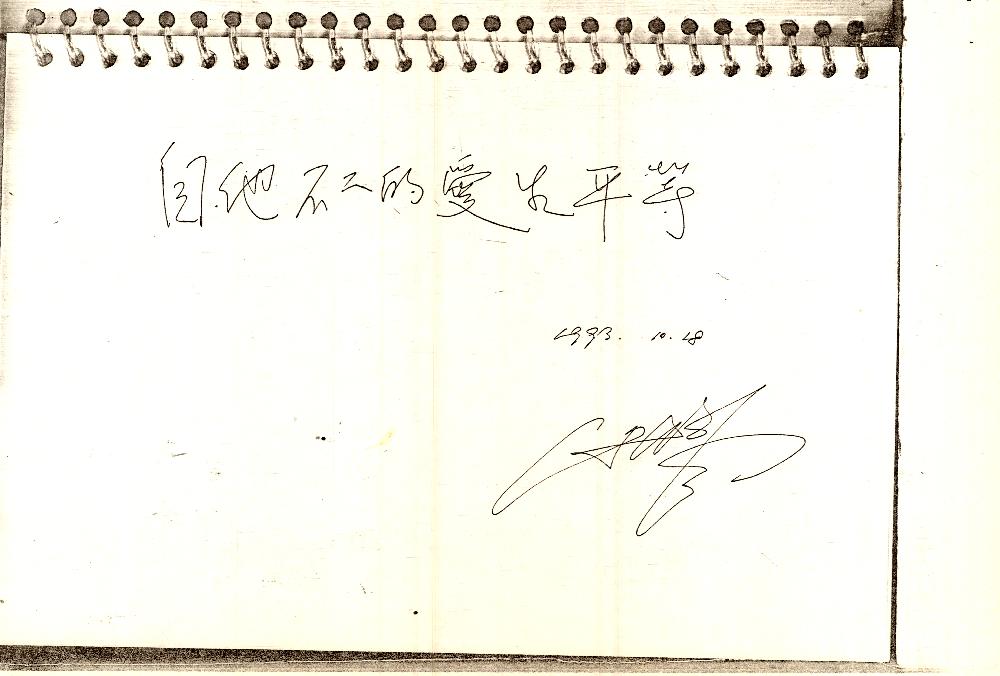 自他不二的愛生平等
1993. 10. 18